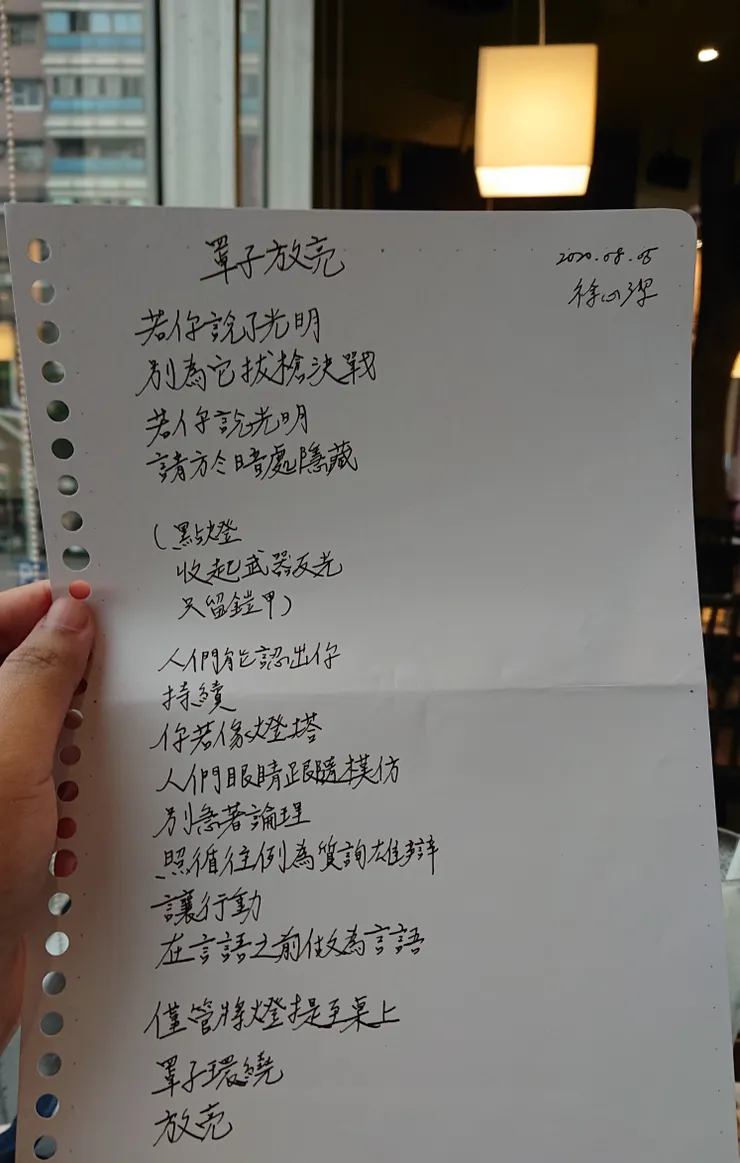 罩子放亮
2020.08.05
徐心潔
若你說了光明
別為它拔槍決戰
若你說光明
請於暗處隱藏
(點燈
收起武器反光
只留鎧甲)
人們能認出你
持續
你若像燈塔
人們眼睛跟隨模仿
別急著論理
照循往例為質詢雄辯
讓行動
在言語之前做為言語
僅管將燈提至桌上
罩子環繞
放亮